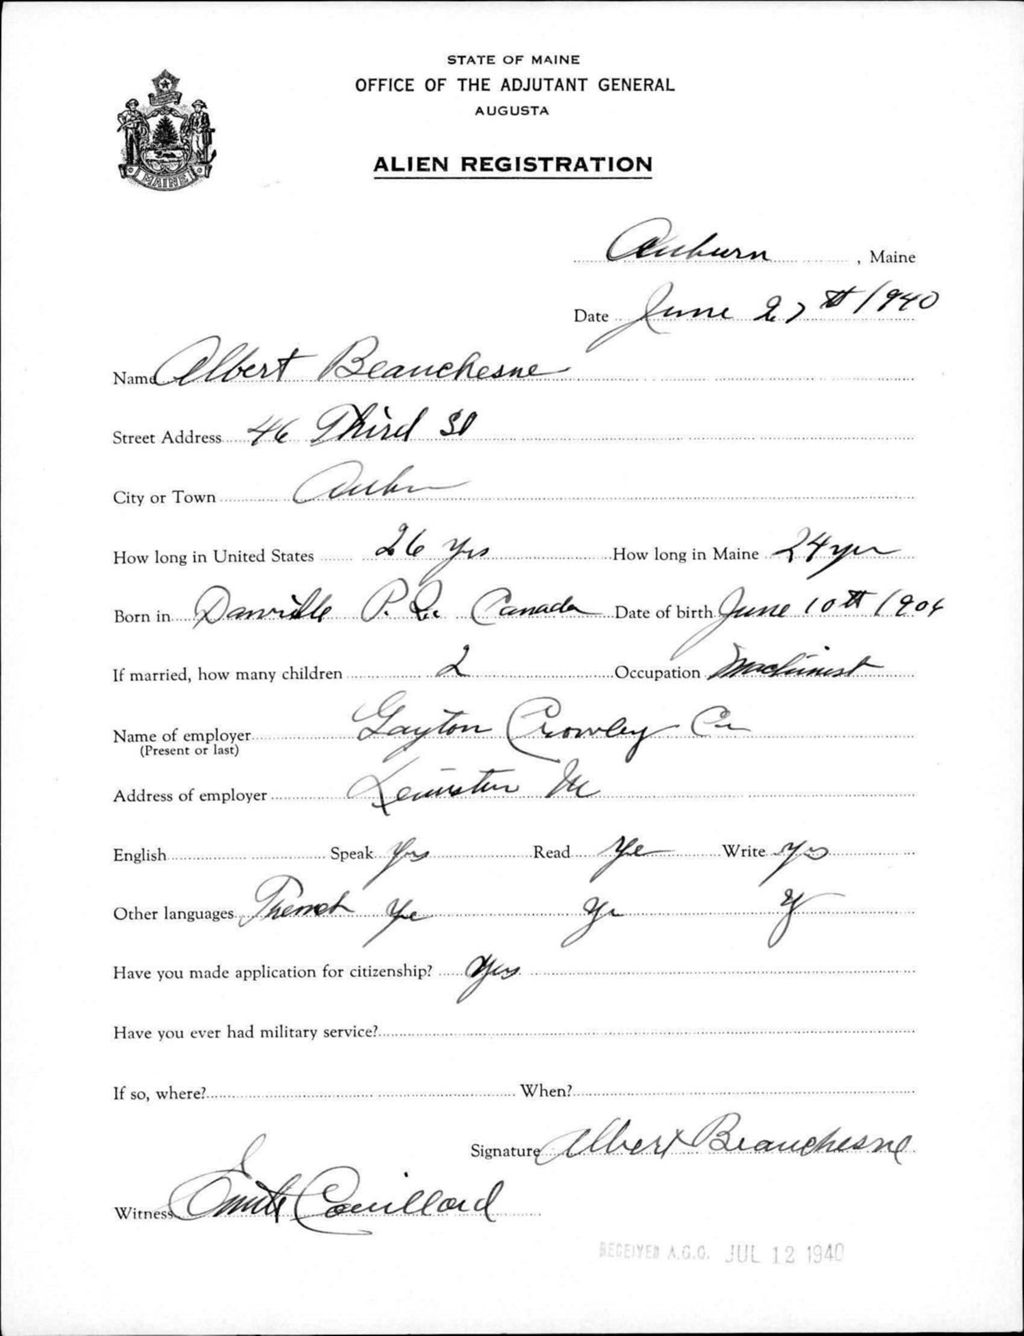 STATE OF MAINE
OFFICE OF THE ADJUTANT GENERAL
AUGUSTA
ALIEN REGISTRATION
MAINE
Auburn, Maine
Date June 27th 1940
Name Albert Beauchesne
Street Address 46 Third St
City or Town Aubn
How long in United States 26 yrs How long in Maine 24 yrs
Born in Danville P. Q. Canada Date of birth June 10th 1904
If married, how many children 2 Occupation Machinist
Name of employer Gayton Crowley Co
(Present or last)
Address of employer Lewiston Me
English Speak Yes Read Ye Write Yes
Other languages French Ye Ye Y
Have you made application for citizenship? Yes
Have you ever had military service?
If so, where? When?
Signature Albert Beauchesne
Witness Emile Couillard
RECEIVED A.G.O. JUL 12 1940